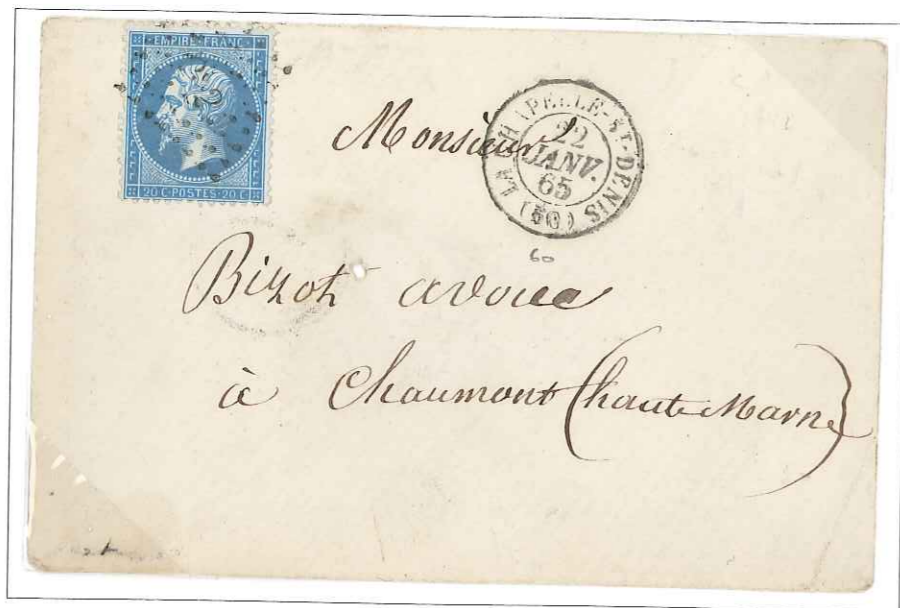 EMPIRE FRANC
20 C POSTES 20 C
LA CHAPELLE-ST-DENIS (60)
22
JANV.
65
60
Monsieur
Bizot avoué
à Chaumont (haute Marne)